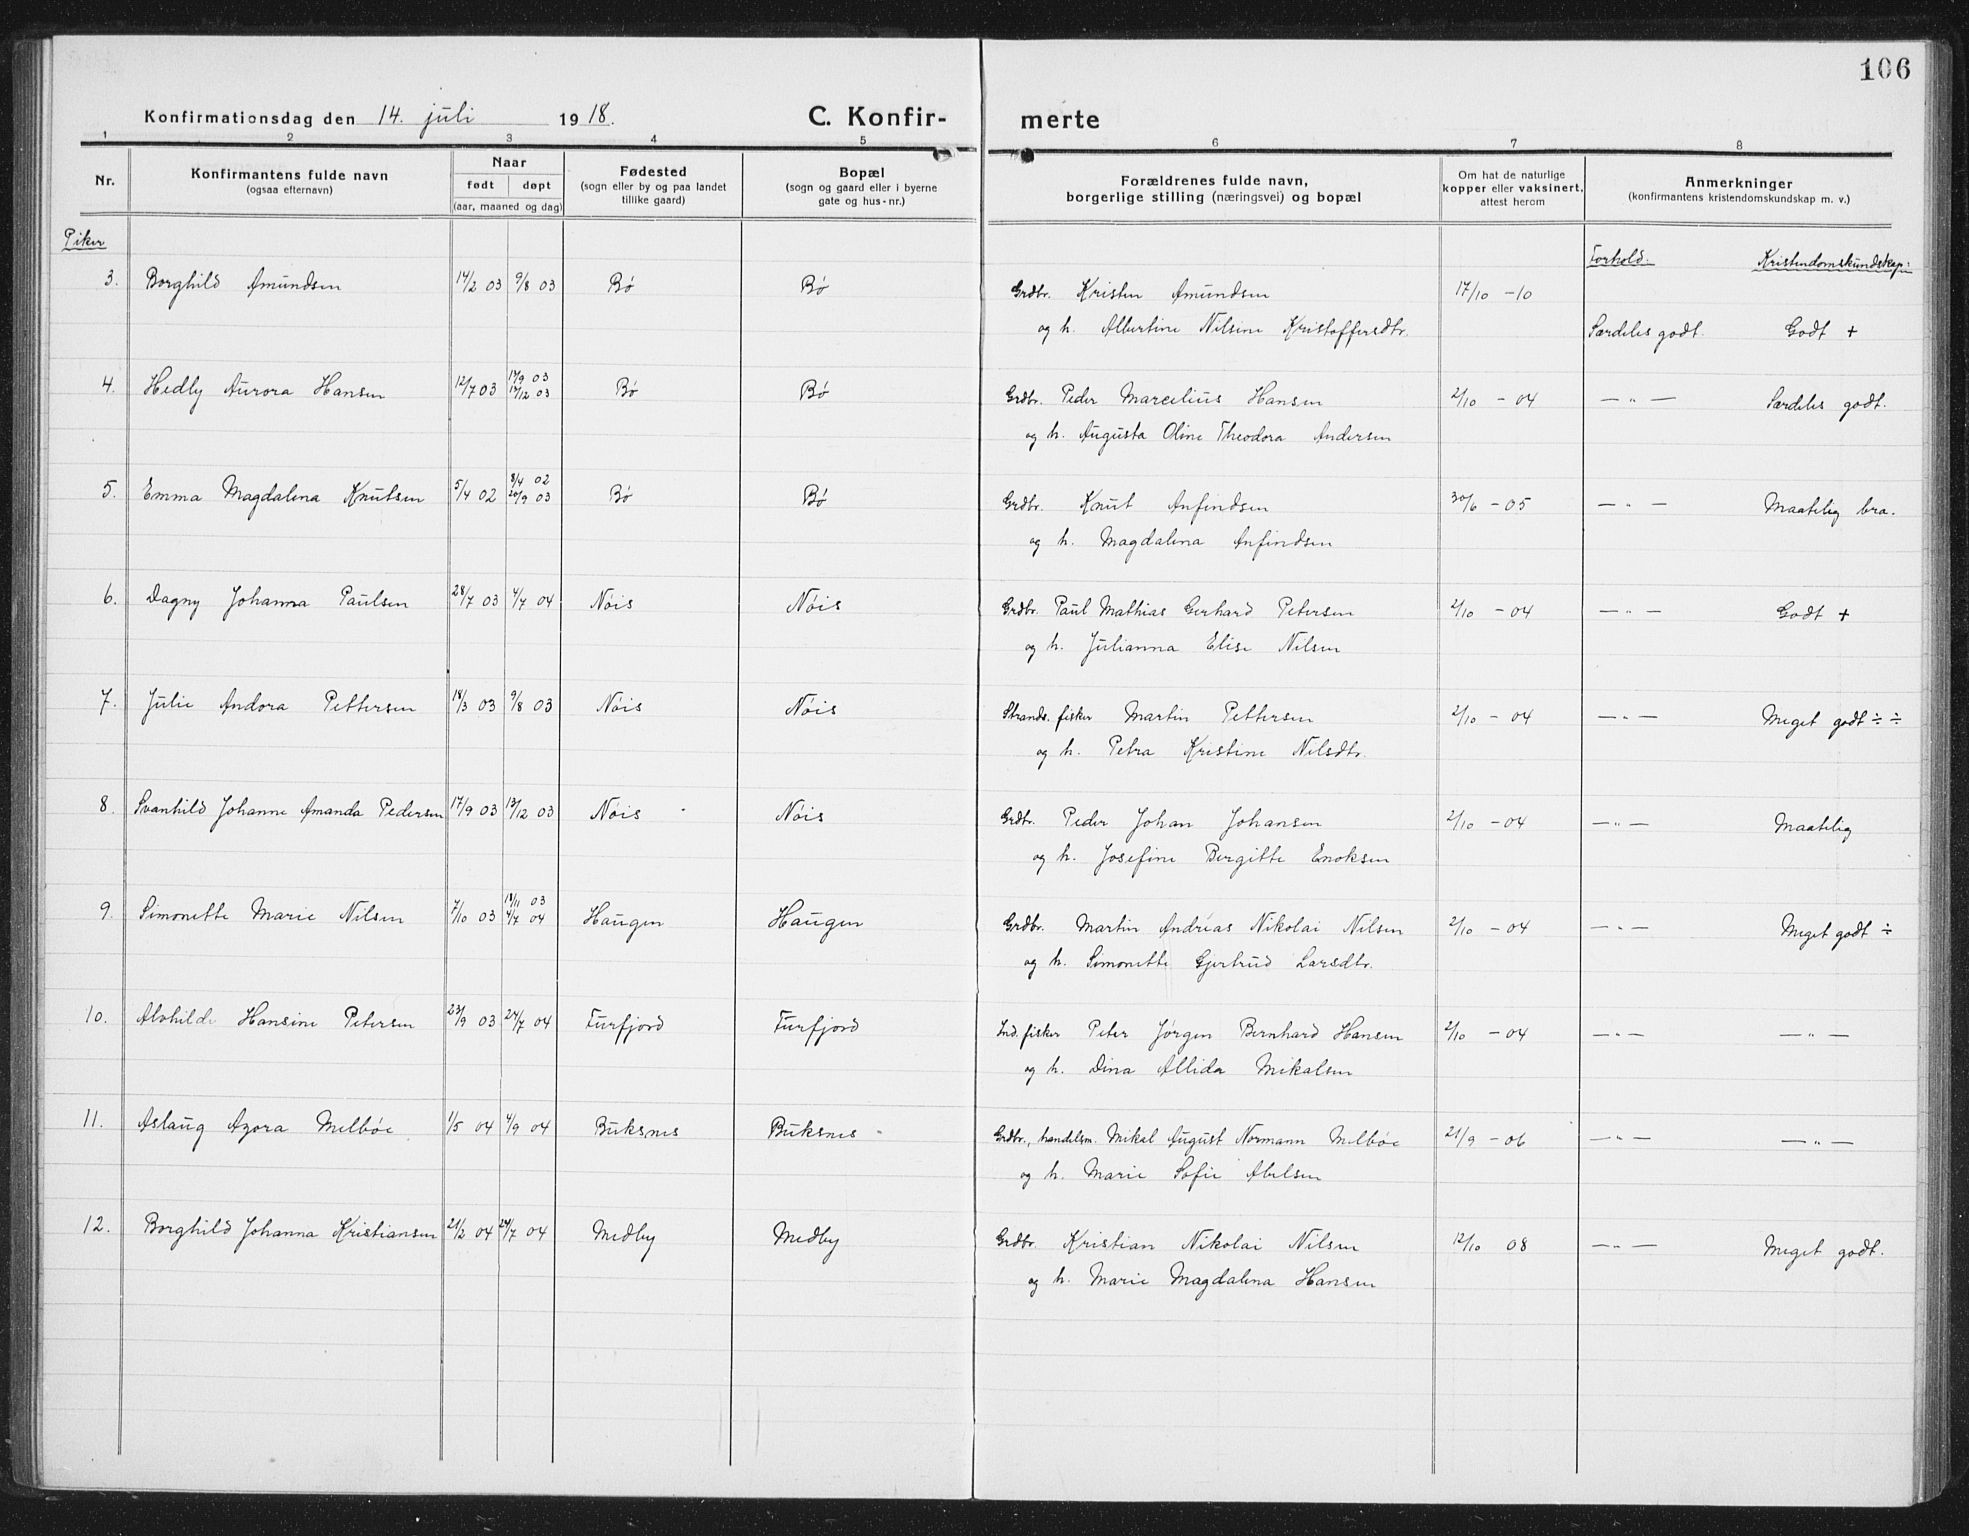 106
Konfirmationsdag den 14. juli 1918. C. Konfir- merte
1 2 3 4 5 6 7 8
Nr. Konfirmantens fulde navn (ogsaa efternavn) Naar født døpt (aar, maaned og dag) Fødested (sogn eller by og paa landet tillike gaard) Bopæl (sogn og gaard eller i byerne gate og hus-nr.) Forældrenes fulde navn, borgerlige stilling (næringsvei) og bopæl Om hat de naturlige kopper eller vaksinert, attest herom Anmerkninger (konfirmantens kristendomskundskap m. v.)
Piker
Forhold. Kristendomskundskap:
3. Borghild Amundsen 14/2 03 9/8 03 Bø Bø Grdbr. Kristen Amundsen 17/10 -10
og h. Albertine Nilsine Kristoffersdtr. Særdeles godt. Godt +
4. Hedly Aurora Hansen 12/7 03 17/9 03 Bø Bø Grdbr. Peder Marcelius Hansen 2/10 - 04 — „ — Særdeles godt.
13/12 03
og h. Augusta Oline Theodora Andersen
5. Emma Magdalena Knutsen 5/4 02 8/4 02 Bø Bø Grdbr. Knut Anfindsen 30/6 - 05 — „ — Maatelig bra.
20/9 03
og h. Magdalena Anfindsen
6. Dagny Johanna Paulsen 28/7 03 4/7 04 Nøis Nøis Grdbr. Paul Mathias Gerhard Petersen 2/10 - 04 — „ — Godt +
og h. Julianna Elise Nilsen
7. Julie Andora Pettersen 18/3 03 9/8 03 Nøis Nøis Strands. fisker Martin Pettersen 2/10 - 04 — „ — Meget godt ÷ ÷
og h. Petra Kristine Nilsdtr.
8. Svanhild Johanne Amanda Pedersen 17/9 03 13/12 03 Nøis Nøis Grdbr. Peder Johan Johansen 2/10 - 04 — „ — Maatelig
og h. Josefine Bergitte Enoksen
9. Simonette Marie Nilsen 7/10 03 18/11 03 Haugen Haugen Grdbr. Martin Andreas Nikolai Nilsen 2/10 - 04 — „ — Meget godt ÷
4/7 04
og h. Simonette Gjertrud Larsdtr.
10. Alvhilde Hansine Petersen 23/9 03 24/7 04 Furfjord Furfjord Ind. fisker Peter Jørgen Bernhard Hansen 2/10 - 04 — „ — — „ —
og h. Dina Allida Mikalsen
11. Aslaug Agora Melbøe 1/5 04 4/9 04 Buksnes Buksnes Grdbr., handelsm. Mikal August Normann Melbøe 21/9 - 06 — „ — — „ —
og h. Marie Sofie Abelsen
12. Borghild Johanna Kristiansen 21/2 04 24/7 04 Medby Medby Grdbr. Kristian Nikolai Nilsen 12/10 08 — „ — Meget godt.
og h. Marie Magdalena Hansen